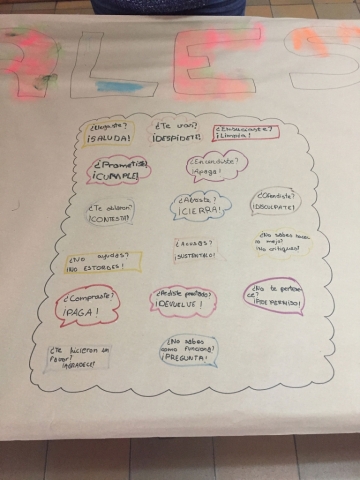 BLES
¿Llegaste?
¡SALUDA!
¿Te vas?
¡DESPÍDETE!
¿Ensuciaste?
¡Limpia!
¿Prometiste?
¡CUMPLE!
¿Encendiste?
¡Apaga!
¿Te hablaron?
¡CONTESTA!
¿Abriste?
¡CIERRA!
¿Ofendiste?
¡DISCULPATE!
¿No ayudas?
¡NO ESTORBES!
¿Acusas?
¡SUSTENTALO!
¿No sabes hacer
lo mejor?
¡No critiques!
¿Compraste?
¡PAGA!
¿Pediste prestado?
¡DEVUELVE!
¿No te pertene-
ce?
¡PIDE PERMISO!
¿Te hicieron un
favor?
¡AGRADECE!
¿No sabes
como funciona?
¡PREGUNTA!